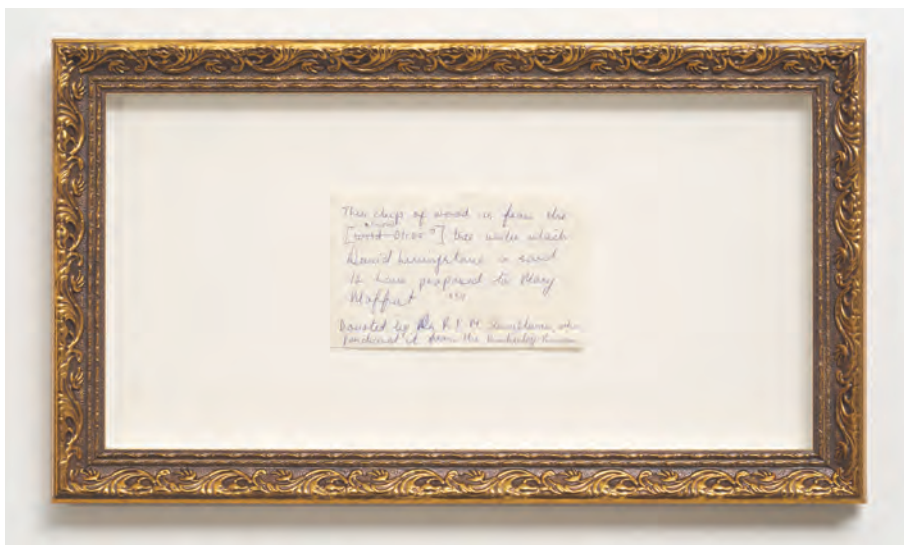 This chip of wood is from the
almond
[wild olive] tree under which
David Livingstone is said
to have proposed to Mary
Moffat
Donated by R. I. M. who
purchased it from the Kimberley